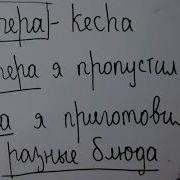 чера - kecha
чера я пропустил
а я приготови
разные блюда